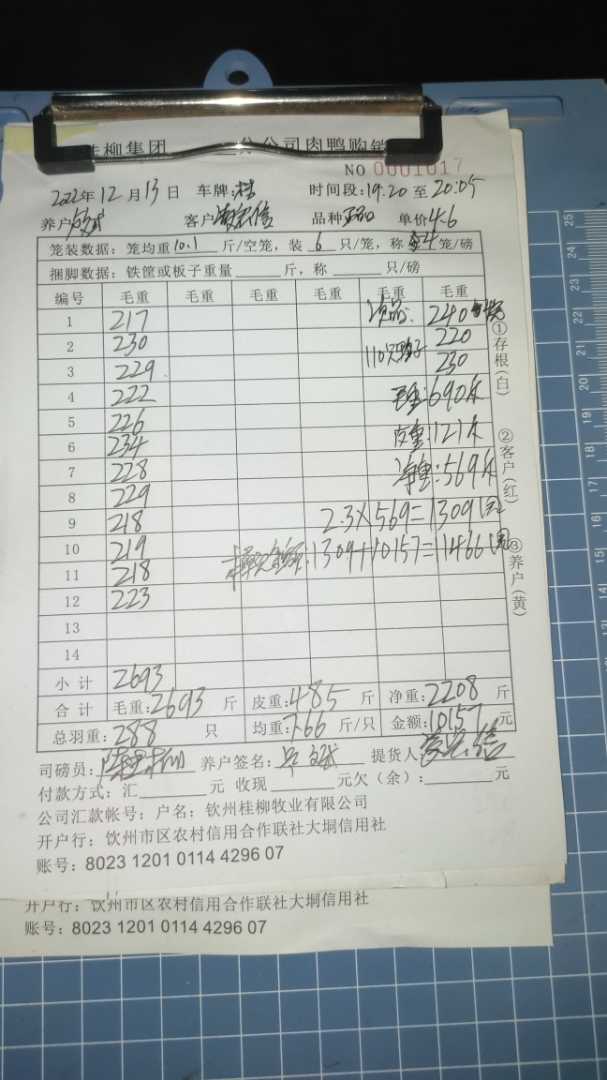 桂柳集团 分公司肉鸭购销
NO 0001017
2022年12月13日 车牌:桂 时间段:19.20至20:05
养户 客户 品种正品 单价4.6
笼装数据:笼均重10.1斤/空笼,装6只/笼,称4笼/磅
捆脚数据:铁筐或板子重量 斤,称 只/磅
编号 毛重 毛重 毛重 毛重 毛重 毛重
1 217 次品: 240
2 230 110只鸭子 220
3 229 230
4 222 毛重:690斤
5 226 皮重:121斤
6 234 净重:569斤
7 228
8 229
9 218 2.3×569=1309(元)
10 219 1309+10157=11466(元)
11 218
12 223
13
14
小计 2693
合计 毛重:2693斤 皮重:485斤 净重:2208斤
总羽重:288只 均重:7.66斤/只 金额:10157元
司磅员: 养户签名: 提货人
付款方式:汇 元 收现 元欠(余): 元
公司汇款帐号:户名:钦州桂柳牧业有限公司
开户行:钦州市区农村信用合作联社大垌信用社
账号:8023 1201 0114 4296 07
①存根(白)
②客户(红)
③养户(黄)
开户行:钦州市区农村信用合作联社大垌信用社
账号:8023 1201 0114 4296 07
25
24
23
22
21
20
19
18
17
16
15